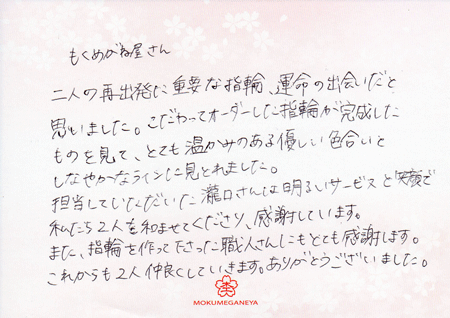 もくめがね屋さん
二人の再出発に重要な指輪、運命の出会いだと
思いました。こだわってオーダーした指輪が完成した
ものを見て、とても温かみのある優しい色合いと
しなやかなラインに見とれました。
担当していただいた瀧口さんは明るいサービスと笑顔で
私たち2人を和ませてくださり、感謝しています。
また、指輪を作って下さった職人さんにもとても感謝します。
これからも2人仲良くしていきます。ありがとうございました。
MOKUMEGANEYA